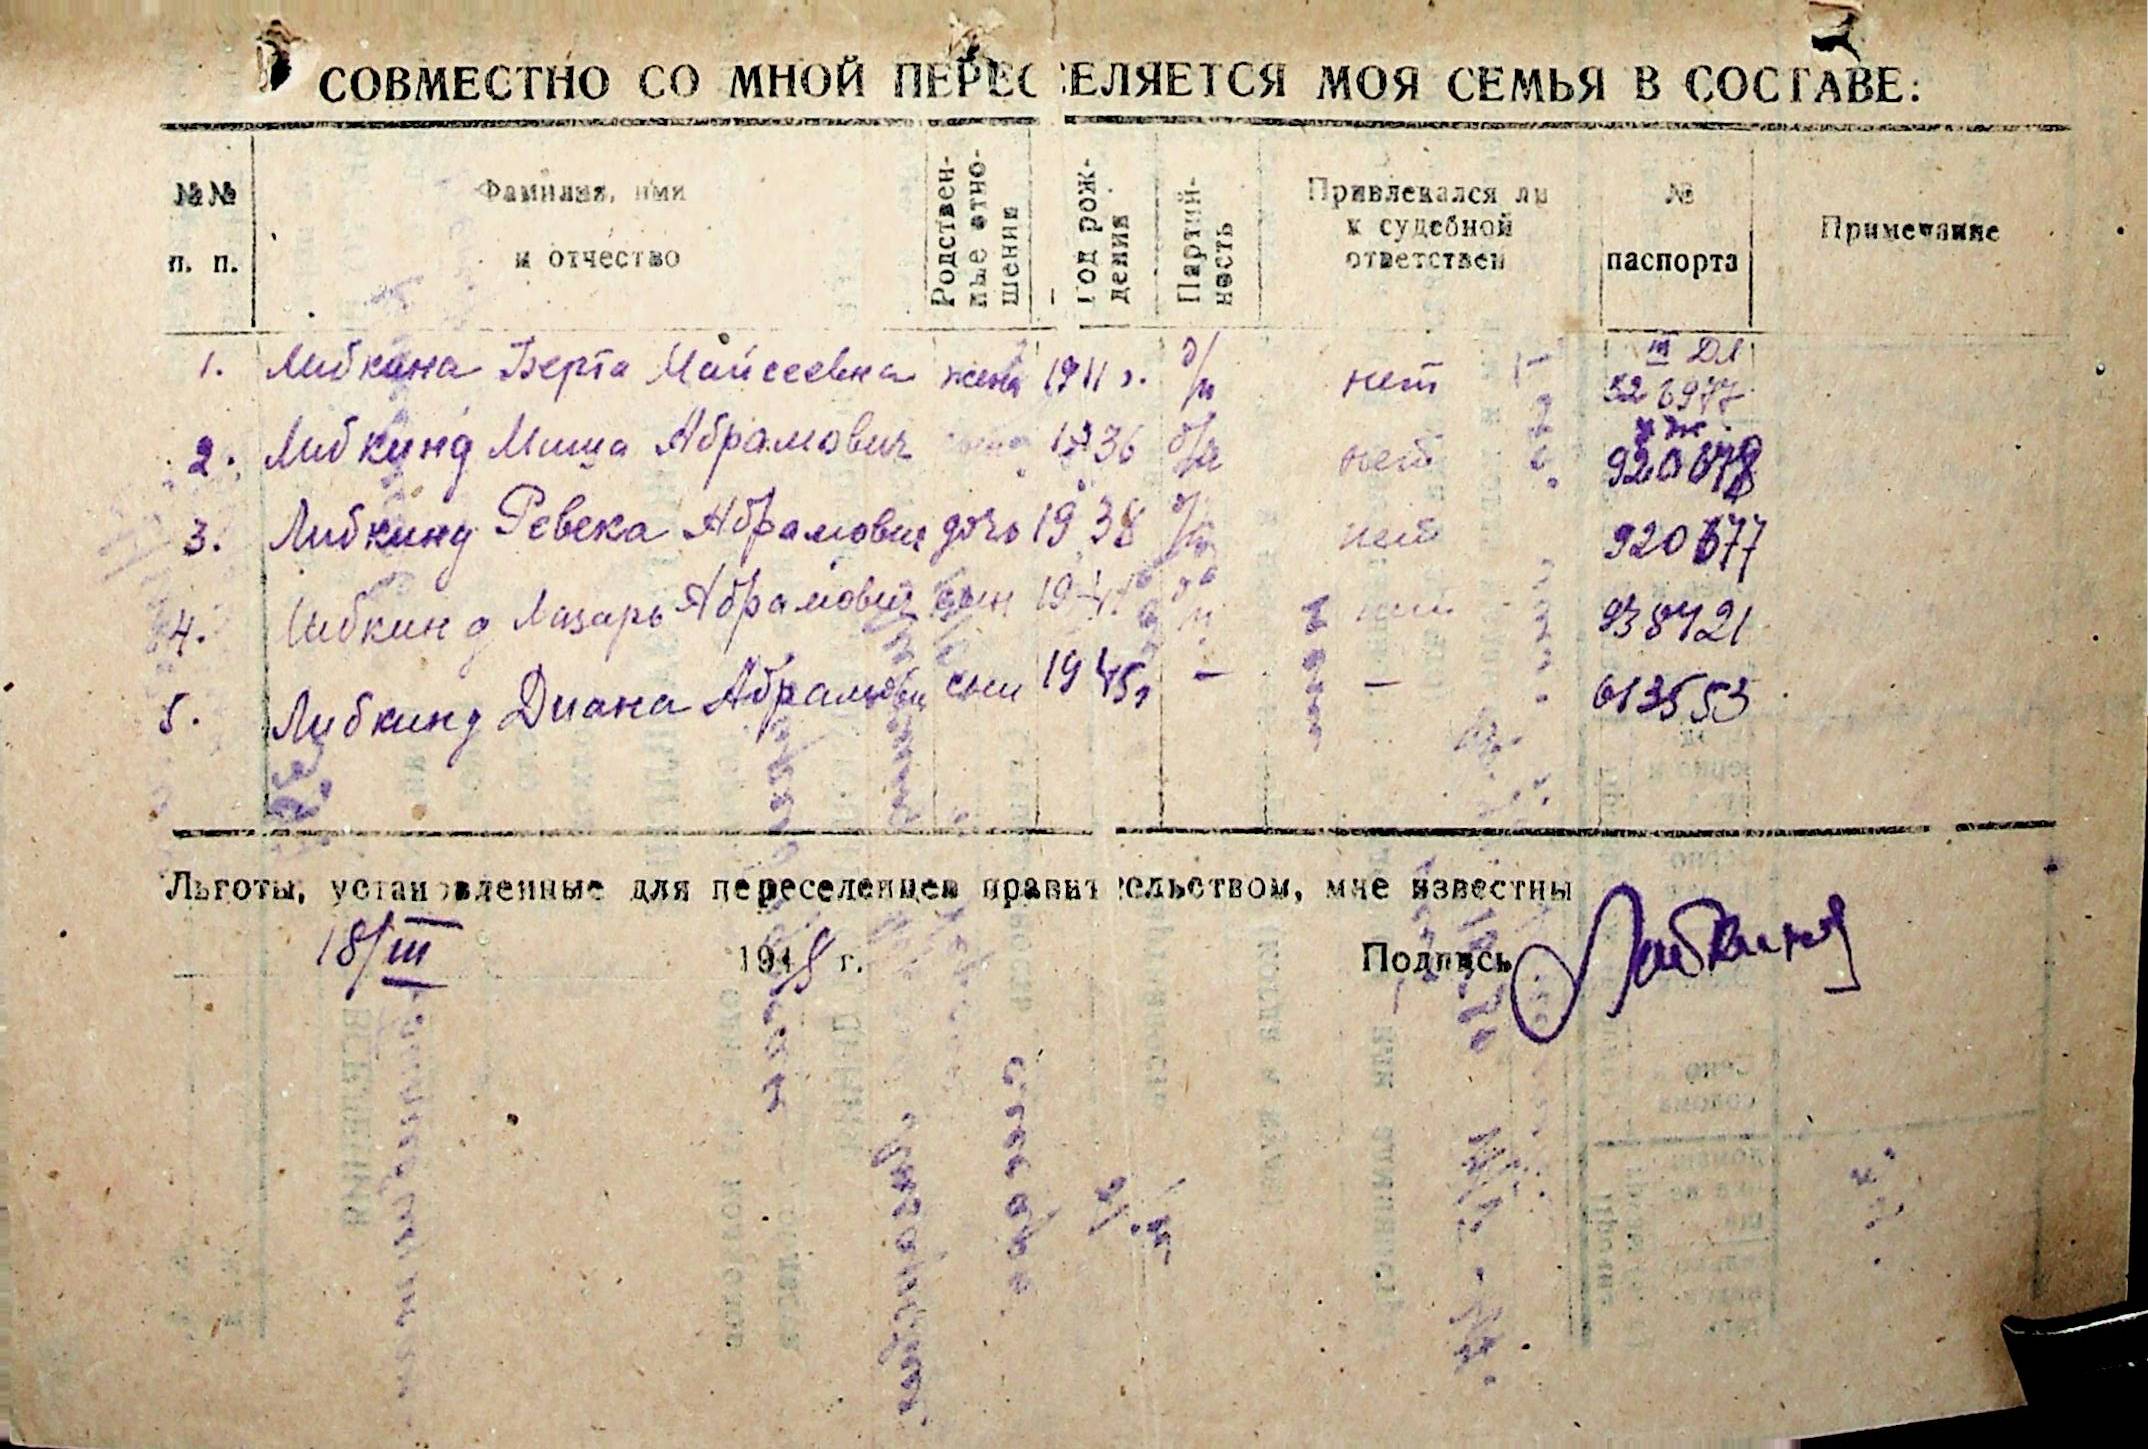 СОВМЕСТНО СО МНОЙ ПЕРЕСЕЛЯЕТСЯ МОЯ СЕМЬЯ В СОСТАВЕ:
№№ п. п. Фамилия, имя и отчество Родствен-ные отно-шения Год рож-дения Партий-ность Привлекался ли к судебной ответствен № паспорта Примечание
1. Либкина Берта Мойсеевна жена 1911 г. б/п нет III ДЛ
2. Либкинд Миша Абрамович 1936 б/п нет 920678
3. Либкинд Ревека Абрамович дочь 1938 б/п нет 920677
4. Либкинд Лазарь Абрамович сын б/п нет 938421
5. Либкинд Диана Абрамович сын 1945 — — 613553
Льготы, установленные для переселенцев правительством, мне известны
18/III 1948 г. Подпись Либкинд